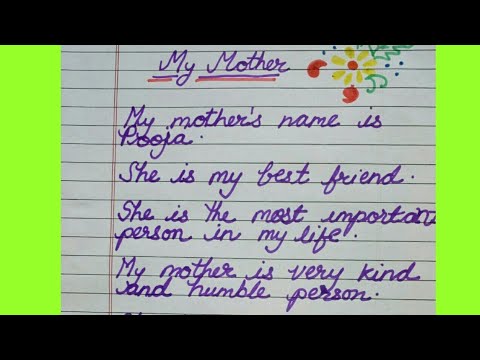 My Mother
My mother's name is
Pooja.
She is my best friend.
She is the most important
person in my life.
My mother is very kind
and humble person.